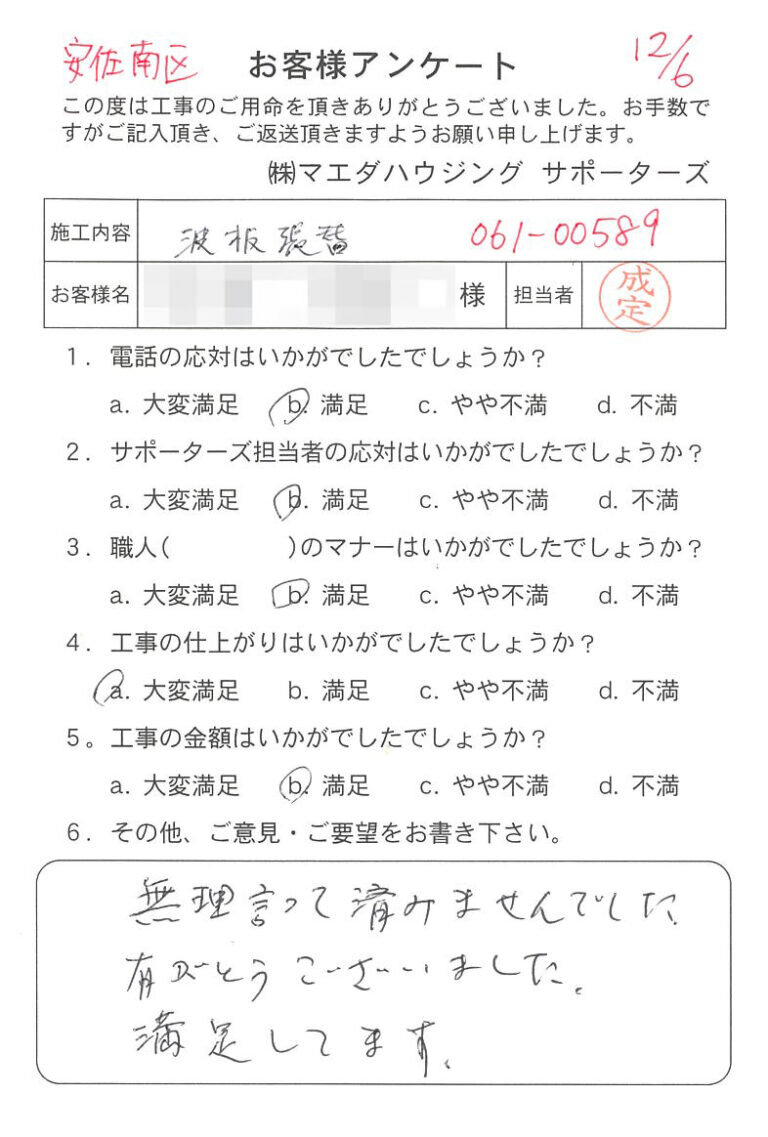 安佐南区 お客様アンケート 12/6
この度は工事のご用命を頂きありがとうございました。お手数で
すがご記入頂き、ご返送頂きますようお願い申し上げます。
㈱マエダハウジング サポーターズ
施工内容 波板張替 061-00589
お客様名 様 担当者 成定
1. 電話の応対はいかがでしたでしょうか？
a. 大変満足 b. 満足 c. やや不満 d. 不満
2. サポーターズ担当者の応対はいかがでしたでしょうか？
a. 大変満足 b. 満足 c. やや不満 d. 不満
3. 職人( )のマナーはいかがでしたでしょうか？
a. 大変満足 b. 満足 c. やや不満 d. 不満
4. 工事の仕上がりはいかがでしたでしょうか？
a. 大変満足 b. 満足 c. やや不満 d. 不満
5。工事の金額はいかがでしたでしょうか？
a. 大変満足 b. 満足 c. やや不満 d. 不満
6. その他、ご意見・ご要望をお書き下さい。
無理言って済みませんでした
有がとうございました。
満足してます。